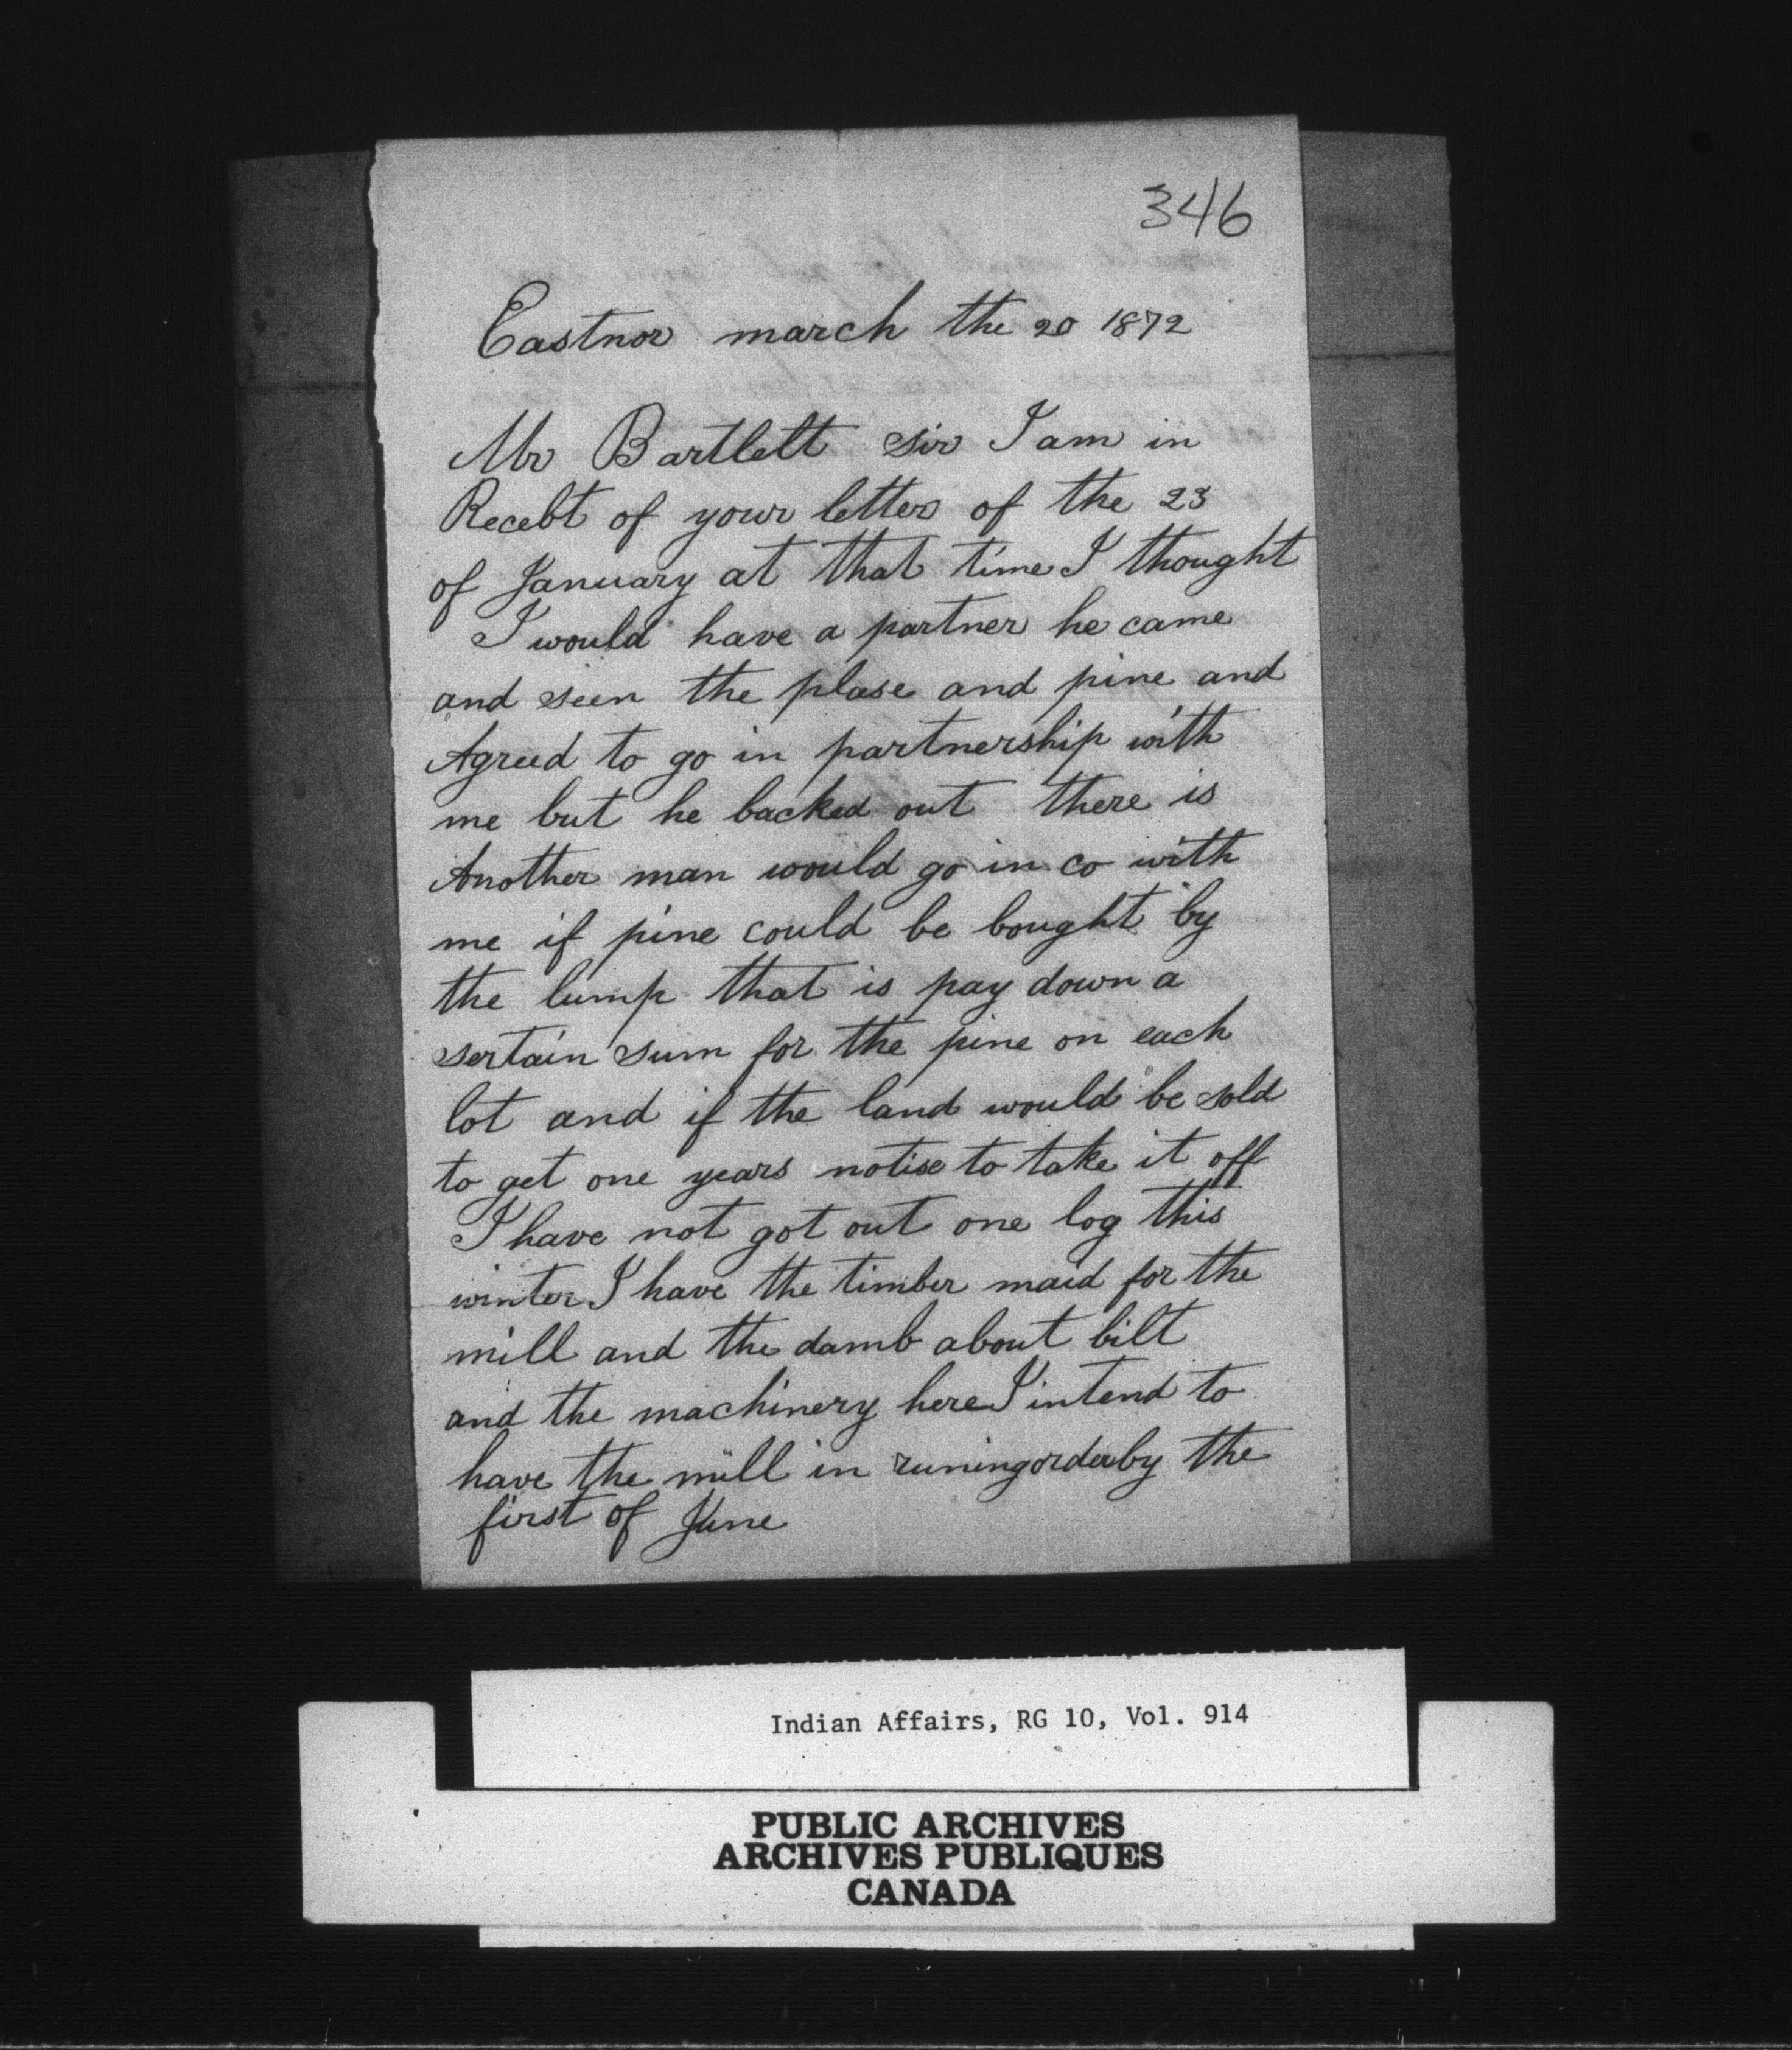 346
Eastnor march the 20 1872
Mr Bartlett sir I am in
Recebt of your letter of the 23
of January at that time I thought
I would have a partner he came
and seen the plase and pine and
Agreed to go in partnership with
me but he backed out there is
Another man would go in co with
me if pine could be bought by
the lump that is pay down a
sertain sum for the pine on each
lot and if the land would be sold
to get one years notise to take it off
I have not got out one log this
winter I have the timber maid for the
mill and the damb about bilt
and the machinery here I intend to
have the mill in runing order by the
first of June
Indian Affairs, RG 10, Vol. 914
PUBLIC ARCHIVES
ARCHIVES PUBLIQUES
CANADA